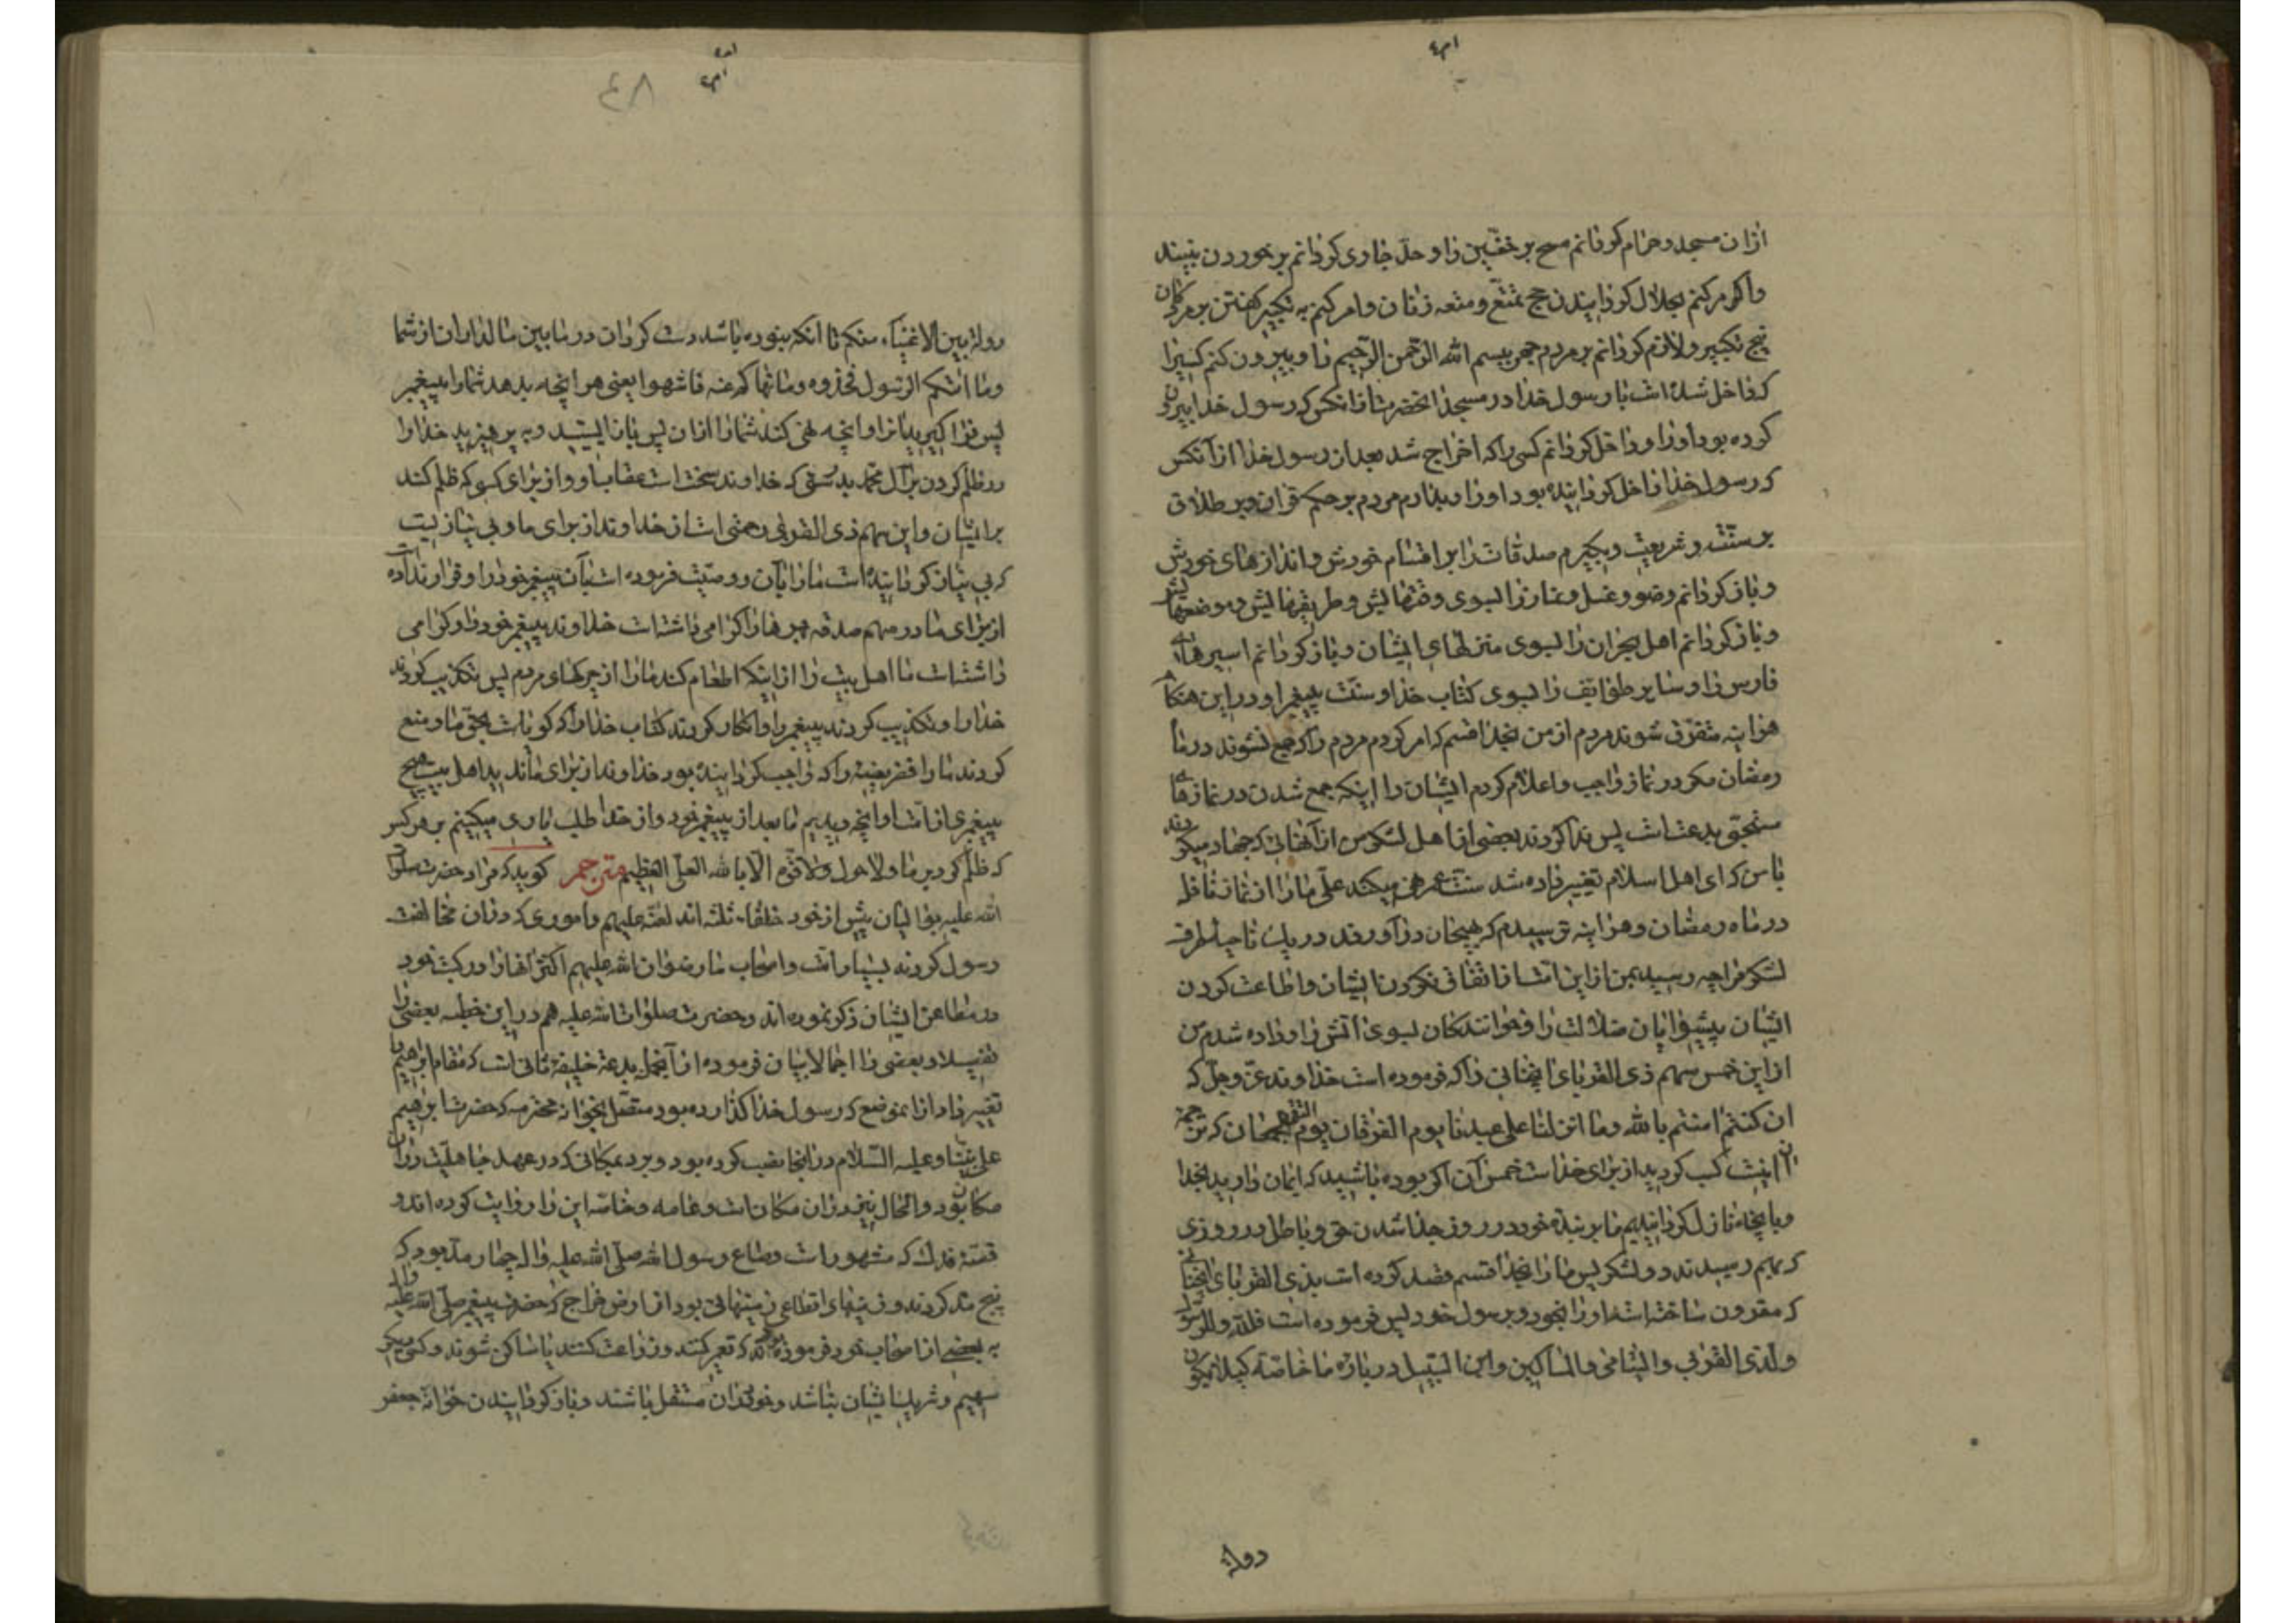 ازان مسجد و حرام گردانم مسح بر خفّین را و حدّ جاری گردانم بر خوردن نبیند
و امر کنم بحلال گردانیدن حج تمتّع و متعه زنان و امر کنم به تکبیر گفتن بر مردگان
پنج تکبیر و لازم گردانم بر مردم جهر ببسم الله الرحمن الرحیم را و بیرون کنم کسیرا
که داخل شده است با رسول خدا در مسجد انحضرت از انکس که رسول خدا بیرون
کرده بود اورا و داخل گردانم کسی را که اخراج شد بعد از رسول خدا از آنکس
که رسول خدا داخل گردانیده بود او را و بدارم مردم بر حکم قران و بر طلاق
بر سنّت و شریعت و بگیرم صدقات را بر اقسام خودش و اندازهای خودش
و باز گردانم وضو و غسل و نماز را بسوی وقتهایش و طریقهایش و موضعهایش
و باز گردانم اهل نجران را بسوی منزلهای ایشان و باز گردانم اسیرهای
فارس را و سایر طوایف را بسوی کتاب خدا و سنّت پیغمبر او در این هنگام
هراینه متفرّق شوند مردم از من بخدا قسم که امر کردم مردم را که جمع نشوند در ماه
رمضان مگر در نماز واجب و اعلام کردم ایشان را اینکه جمع شدن در نمازهای
سنّتی بدعتست پس ندا کردند بعضی از اهل لشکر من از آنهائی که جهاد میکردند
با من که ای اهل اسلام تغییر داده شد سنّت عمر نهی میکند علی مارا از نماز نافله
در ماه رمضان و هراینه ترسیدم که هیجان درآورند در یک ناحیه طرف
لشکر مرا چه رسید بمن از این امّت از اتفاق نکردن ایشان و اطاعت کردن
ایشان پیشوایان ضلالت را و خوانندگان بسوی آتش را و داده شدم من
از این خمس سهم ذی القربای انچنانی را که فرموده است خداوند عزّ و جلّ که
ان کنتم امنتم بالله و ما انزلنا علی عبدنا یوم الفرقان یوم التقی الجمعان
اینست کسب کردید از برای خداست خمس آن اگر بوده باشید که ایمان دارید بخدا
و بانچه نازل گردانیدیم ما بر بنده خود در روز جدا شدن حق و باطل در روزی
که بهم رسیدند دو لشکر پس مارا بخدا قسم قصد کرده است بذی القربای انچنانی
که مقرون ساخته است اورا بخود و برسول خود پس فرموده است فللّه و للرسول
و لذی القربی و الیتامی و المساکین و ابن السبیل در باره ما خاصّه کیلا یکون
دولة
٤٨
دولة بین الاغنیاء منکم تا انکه نبوده باشد دست گردان در مابین مالداران از شما
و ما اتیکم الرسول فخذوه و ما نهاکم عنه فانتهوا یعنی هر انچه بدهد شمارا پیغمبر
پس فرا گیرید انرا و انچه نهی کند شمارا ازان پس باز ایستید و به پرهیزید خدارا
در ظلم کردن بر آل محمد بدرستی که خداوند سخت است عقاب او از برای کسی که ظلم کند
بر ایشان و این سهم ذی القربی رحمتی است از خداوند از برای ما و بی نیازیست
که بی نیاز گردانیده است مارا بآن و وصیّت فرموده است بآن پیغمبر خود را و قرار نداده است
از برای ما در سهم صدقه بهره را گرامی داشته است خداوند پیغمبر خود را و گرامی
داشته است ما اهل بیت را از اینکه اطعام کند مارا از چرکهای مردم پس تکذیب کردند
خدارا و تکذیب کردند پیغمبر را و انکار کردند کتاب خدا را که گویاست بحقّ ما و منع
کردند مارا فریضه را که واجب گردانیده بود خداوند از برای ما ندید اهل بیت هیچ
پیغمبری از امّت او انچه دیدیم ما بعد از پیغمبر خود و از خدا طلب یاوری میکنیم بر هر کس
که ظلم کرد بر ما و لا حول و لا قوّة الا بالله العلیّ العظیم مترجم گوید که مراد حضرت صلوات
الله علیه بوالیان پیش از خود خلفاء ثلثه اند لعنة علیهم و اموری که دران مخالفت
رسول کردند بسیار است و اصحاب ما رضوان الله علیهم اکثر انها را در کتب خود
در مطاعن ایشان ذکر نموده اند و حضرت صلوات الله علیه هم در این خطبه بعضی را
تفصیلا و بعضی را اجمالا بیان فرموده از آنجمله بدعة خلیفهٔ ثانی است که مقام ابراهیم را
تغییر داد از انموضع که رسول خدا گذارده بود متصّل بخوانه محترمه که حضرت ابراهیم
علی نبیّنا و علیه السّلام در انجا نصب کرده بود و برد بمکانی که در عهد جاهلیت دران
مکان بود و الحال نیز دران مکان است و عامه و خاصّه این را روایت کرده اند و
قصّهٔ فدک که مشهور است و صاع رسول الله صلّی الله علیه و اله چهار مدّ بود که
پنج مد کردند و زمینهای اقطاعی زمینهائی بود از ارض خراج که حضرت پیغمبر صلّی الله علیه و اله
به بعضی از اصحاب خود فرموده بودند که تعمیر کنند و زراعت کنند یا ساکن شوند و کسی دیگر
سهیم و شریک ایشان نباشد و خودشان مستقل باشند و باز گردانیدن خوانهٔ جعفر